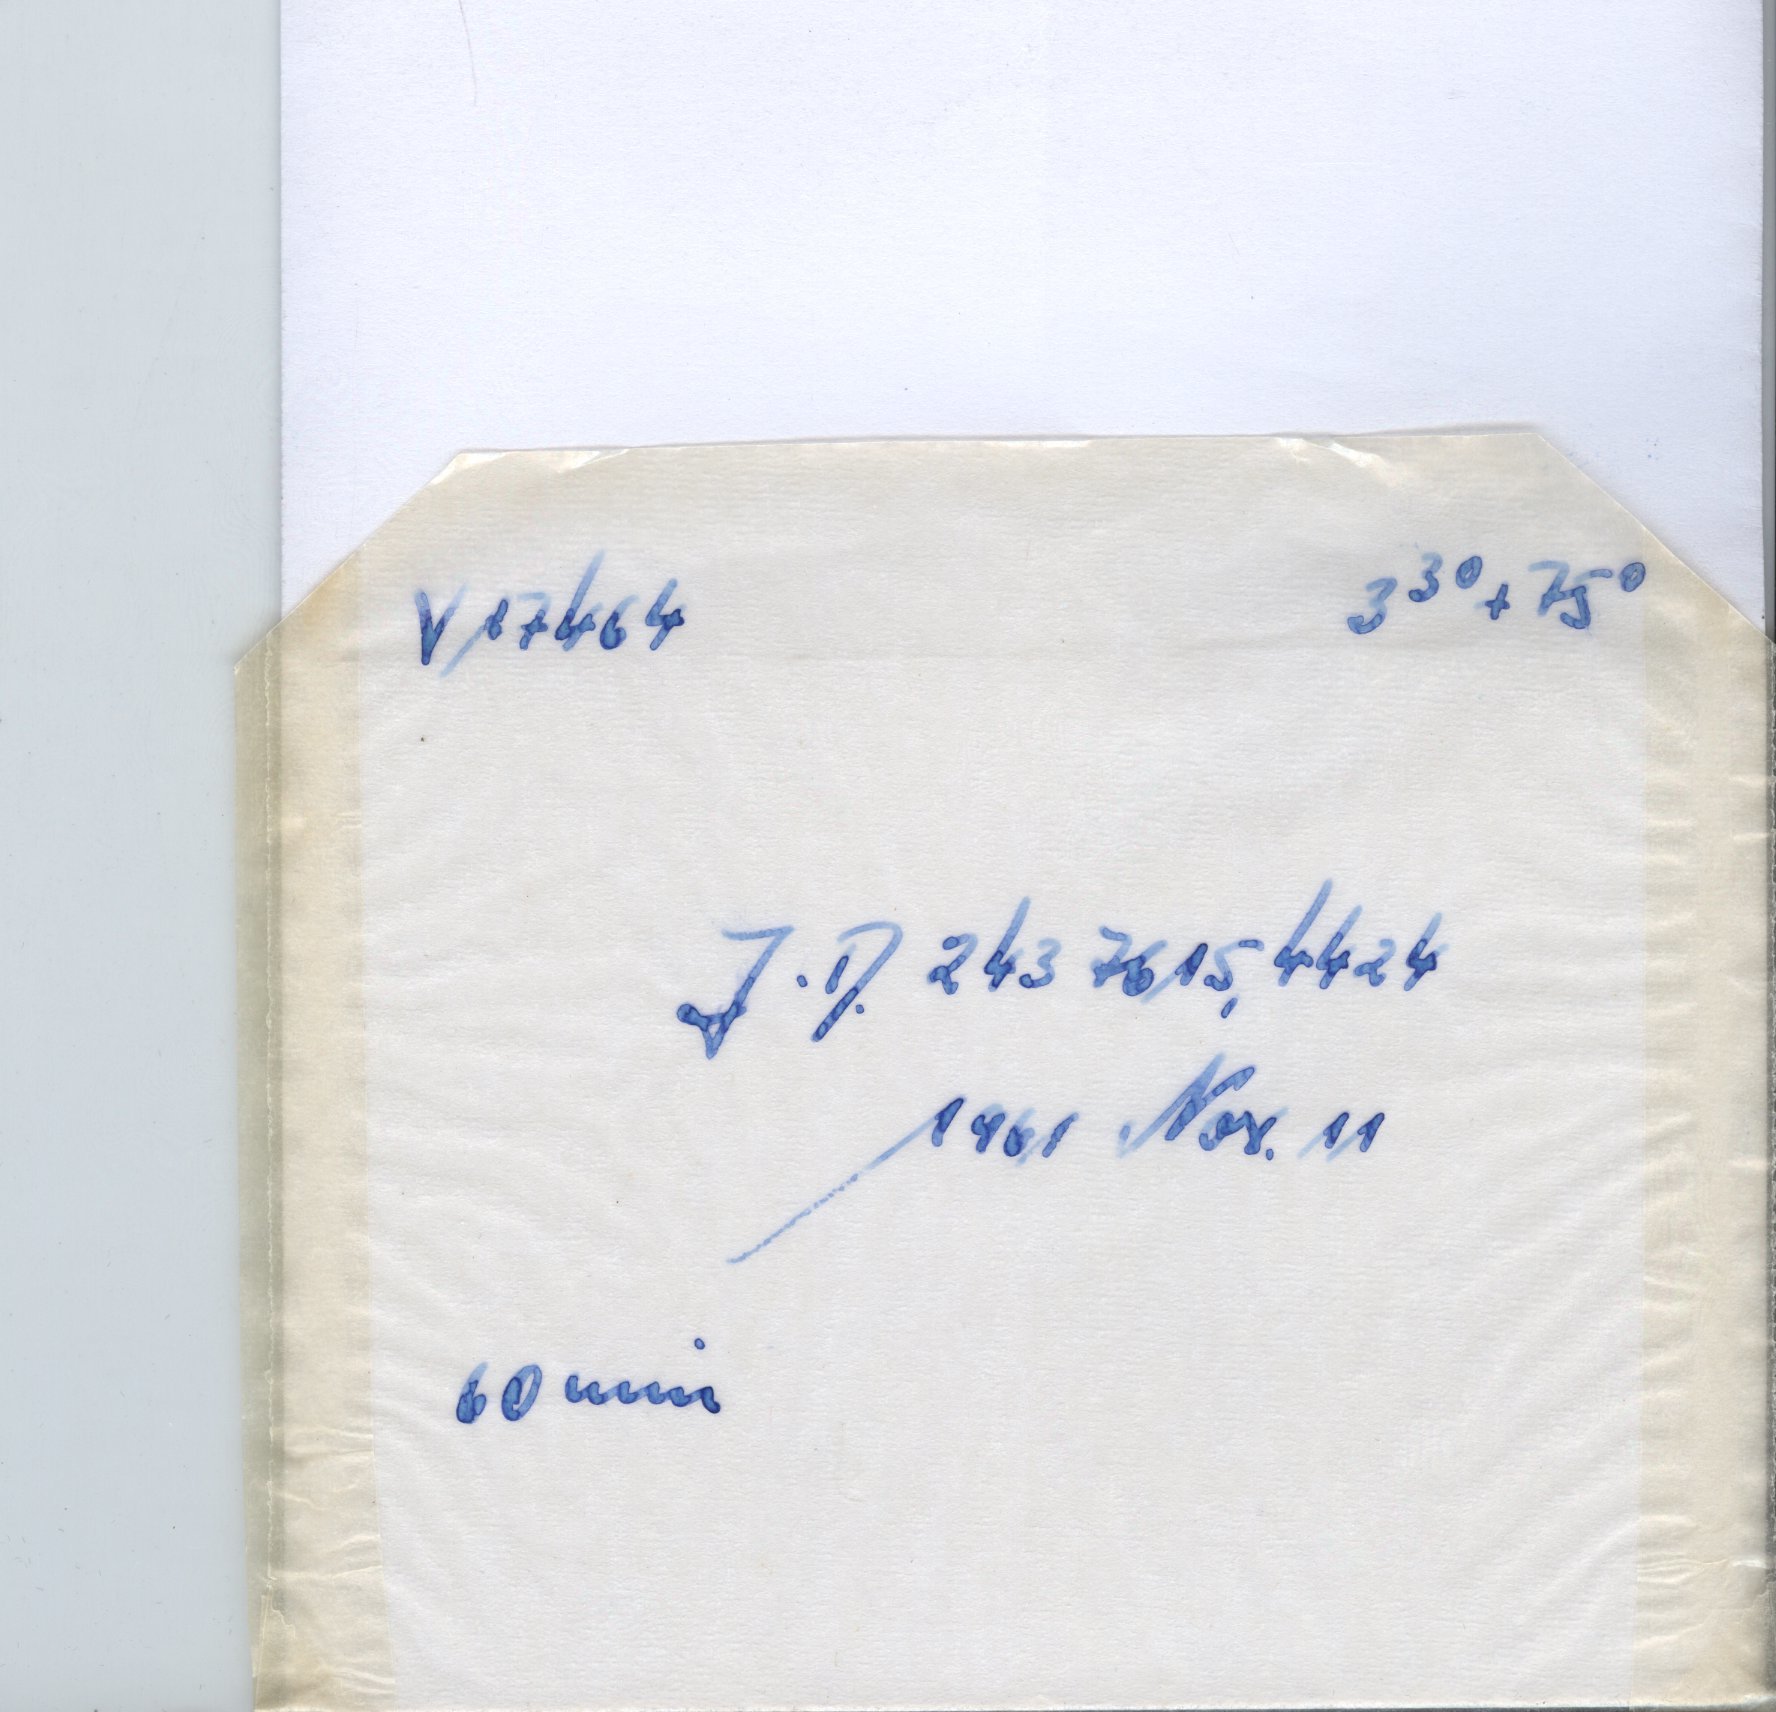 V 17464 3³⁰ + 75°
J.D. 243 7615,4424
1961 Nov. 11
60 min